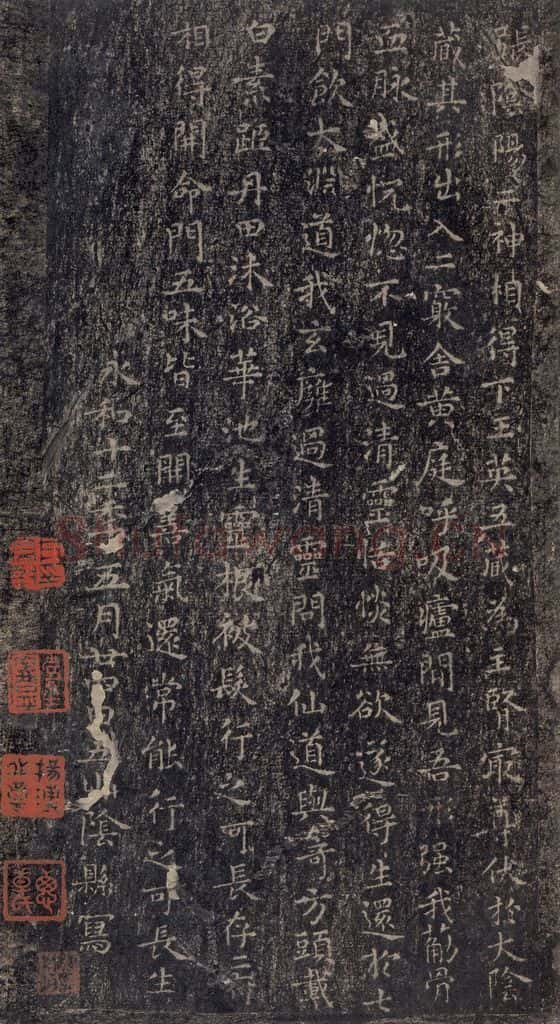 張陰陽天神相得下玉英五藏為主腎最尊伏於大陰
藏其形出入二竅舍黄庭呼吸廬間見吾形强我荕骨
血脉盛恍惚不見過清靈恬惔無欲遂得生還於七
門飲太淵道我玄廱過清靈問我仙道與奇方頭戴
白素距丹田沐浴華池生靈根被髮行之可長存二府
相得開命門五味皆至開善氣還常能行之可長生
永和十二年五月廿四日五山陰縣寫